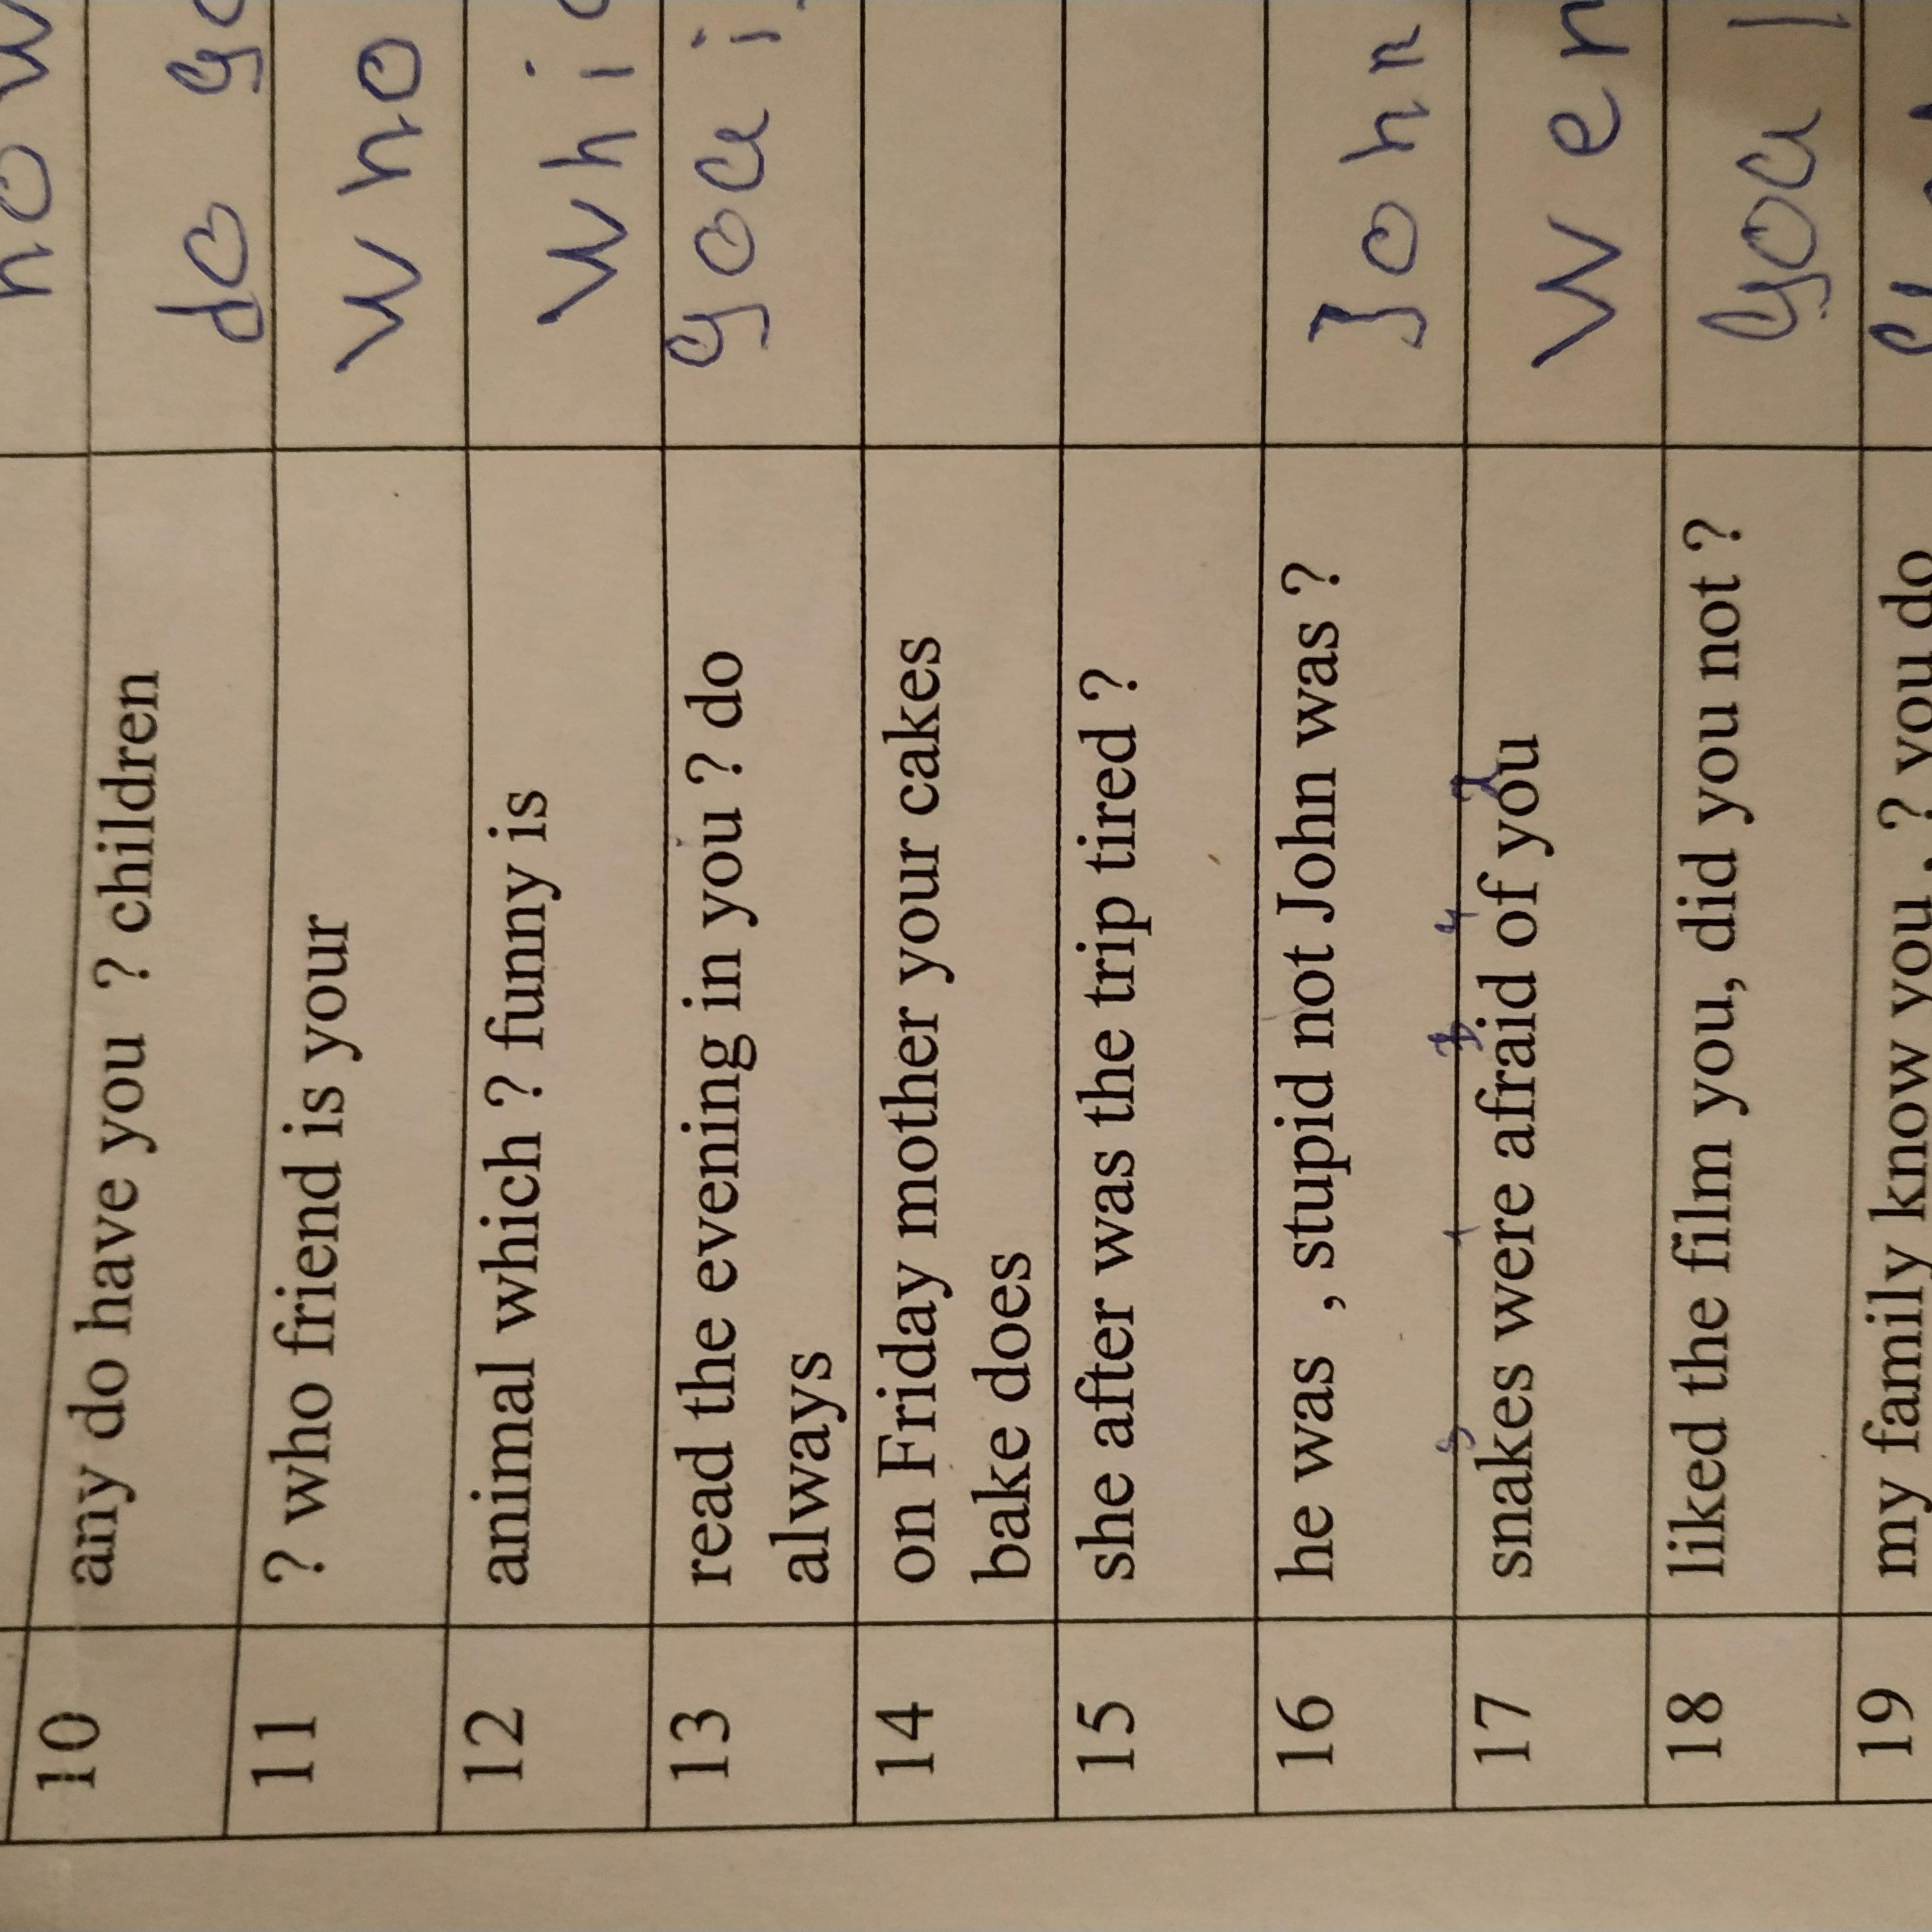 how
10 any do have you ? children do yo
11 ? who friend is your who
12 animal which ? funny is whic
13 read the evening in you ? do
always
14 on Friday mother your cakes
bake does
15 she after was the trip tired ?
16 he was , stupid not John was ? John
17 snakes were afraid of you Wer
5 1 3 4 2
18 liked the film you, did you not ? you l
19 my family know you , ? you do